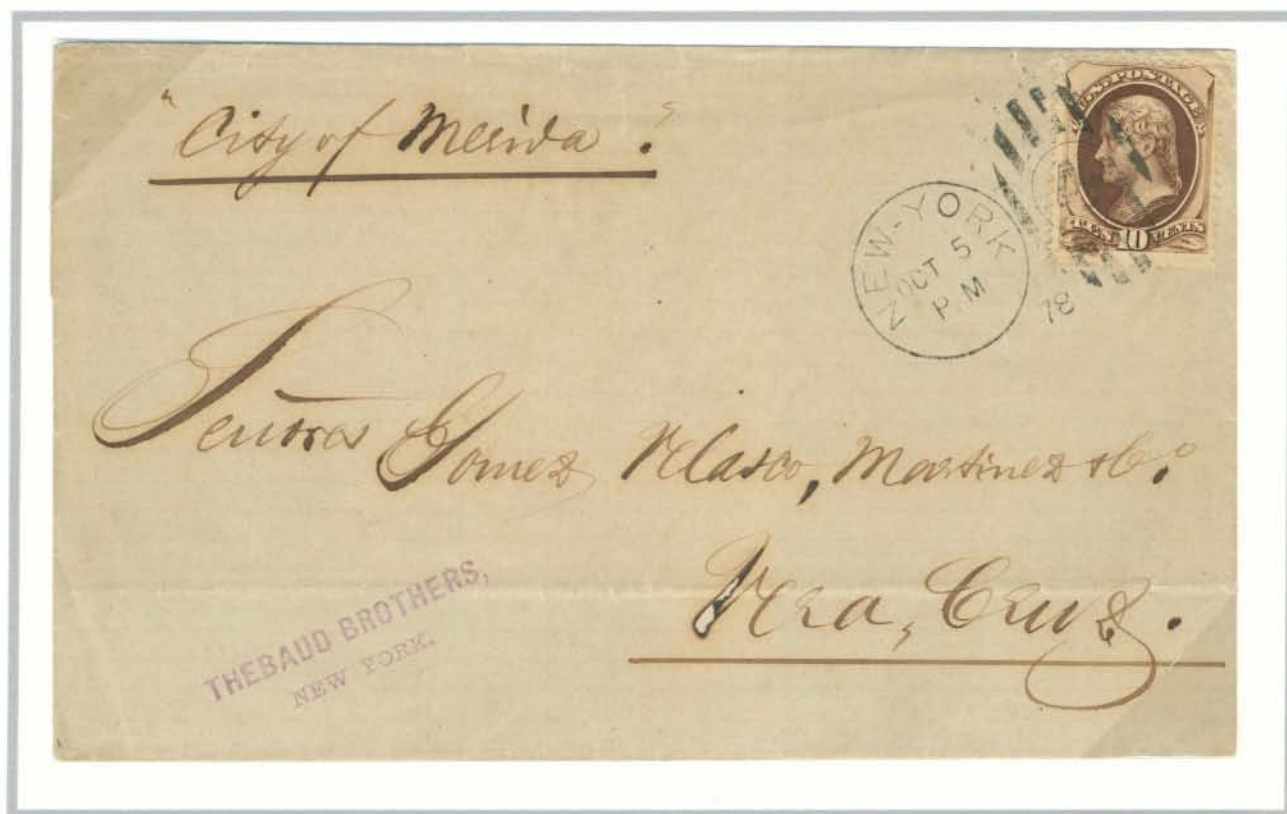 "City of Merida."
U.S. POSTAGE
TEN 10 CENTS
NEW-YORK
OCT 5
P.M
78
Señores Gomez Velasco, Martinez & Co.
Vera, Cruz.
THEBAUD BROTHERS,
NEW YORK.